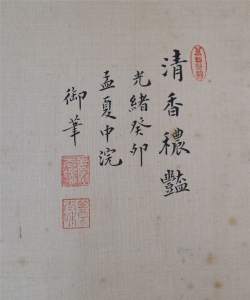 清香穠豔
光緒癸卯
孟夏中浣
御筆